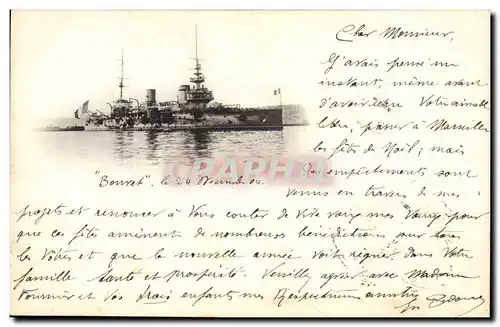 Cher Monsieur,
J'avais pensé un
instant, même avant
d'avoir lu Votre aimable
passer à Marseille
les fêtes de Noël; mais
empêchements sont
venus en travers de mes
"Bouvet". le 24 Décembre 04.
projets et renoncer à Vous conter de vive voix mes Vœux pour
que ces fêtes amènent de nombreuses bénédictions sur tous
les Vôtres et que la nouvelle année voit régner dans Votre
famille Santé et prospérité Veuillez agréer avec Madame
Fournier et Vos enfants mes respectueux